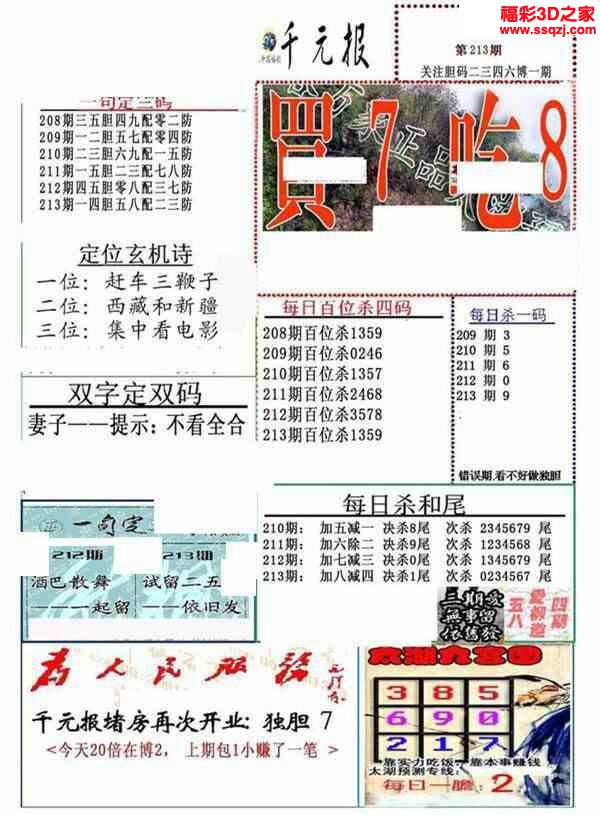 福彩3D之家
www.ssqzj.com
千元报
第213期
关注胆码二三四六博一期
一句定三码
208期三五胆四九配零二防
209期一二胆五七配零四防
210期二三胆六九配一五防
211期一五胆二三配七八防
212期四五胆零八配三七防
213期一四胆五八配二三防
買7吃8
定位玄机诗
一位：赶车三鞭子
二位：西藏和新疆
三位：集中看电影
每日百位杀四码
208期百位杀1359
209期百位杀0246
210期百位杀1357
211期百位杀2468
212期百位杀3578
213期百位杀1359
每日杀一码
209 期 3
210 期 5
211 期 6
212 期 0
213 期 9
错误期,看不好做独胆
双字定双码
妻子——提示：不看全合
每日杀和尾
210期： 加五减一 决杀8尾 次杀 2345679 尾
211期： 加六除二 决杀9尾 次杀 1234568 尾
212期： 加七减三 决杀0尾 次杀 1345679 尾
213期： 加八减四 决杀1尾 次杀 0234567 尾
一句定
212期
213期
酒巴散舞
——一起留
试留二五
——依旧发
三期爱
無事留
依舊發
四期
愛個邀
五八
为人民服务
千元报堵房再次开业：独胆 7
<今天20倍在博2， 上期包1小赚了一笔 >
太湖九宫图
3 8 5
6 9 0
2 1 7
靠实力吃饭，靠本事赚钱
太湖预测专线：
每日一胆： 2